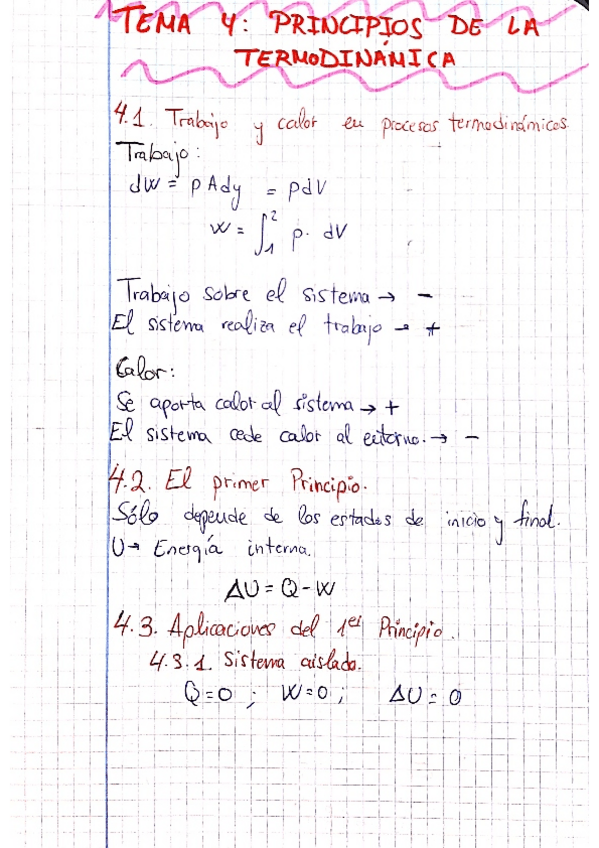 TEMA 4: PRINCIPIOS DE LA
TERMODINÁMICA
4.1. Trabajo y calor en procesos termodinámicos.
Trabajo:
dW = pAdy = pdV
W = ∫₁² p · dV
Trabajo sobre el sistema → -
El sistema realiza el trabajo → +
Calor:
Se aporta calor al sistema → +
El sistema cede calor al externo. → -
4.2. El primer Principio.
Sólo depende de los estados de inicio y final.
U → Energía interna.
ΔU = Q - W
4.3. Aplicaciones del 1er Principio.
4.3.1. Sistema aislado.
Q = 0 ; W = 0 ; ΔU = 0